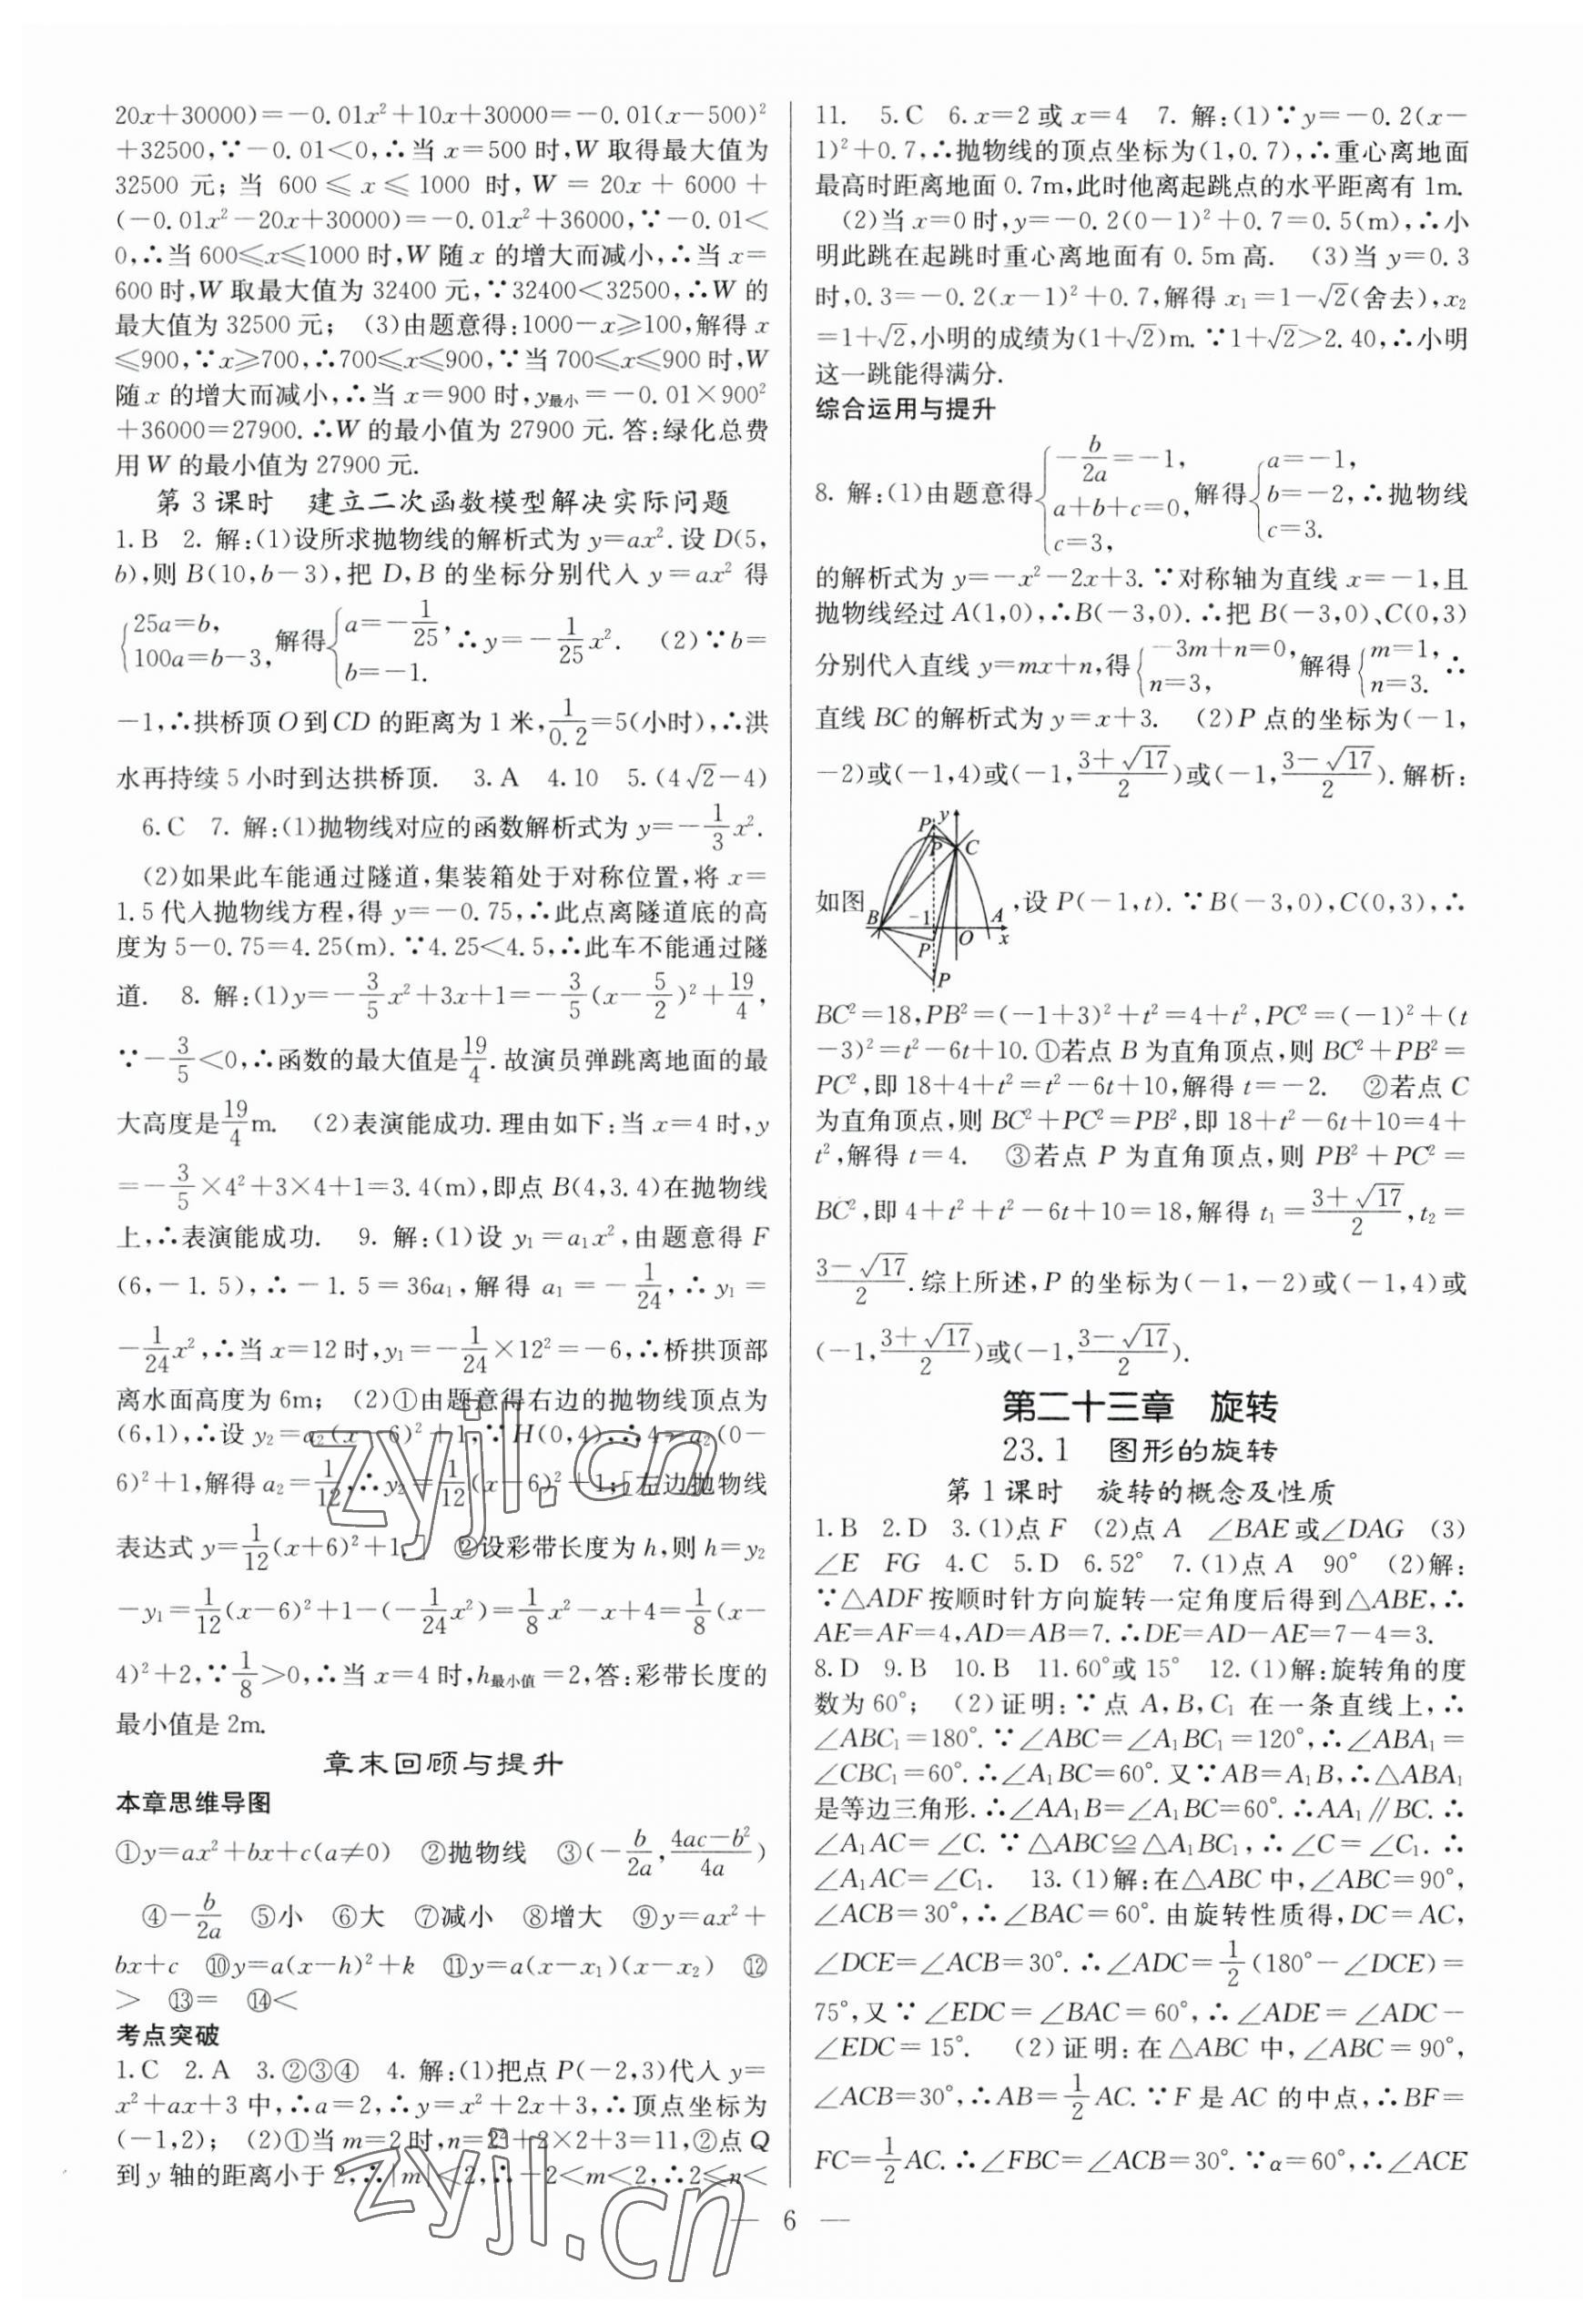 20x+30000)=-0.01x²+10x+30000=-0.01(x-500)²
+32500,∵-0.01<0,∴当 x=500 时,W 取得最大值为
32500 元; 当 600 ⩽ x ⩽ 1000 时, W = 20x + 6000 +
(-0.01x²-20x+30000)=-0.01x²+36000,∵-0.01<
0,∴当 600⩽x⩽1000 时,W 随 x 的增大而减小,∴当 x=
600 时,W 取最大值为 32400 元,∵32400<32500,∴W 的
最大值为 32500 元; (3)由题意得:1000-x⩾100,解得 x
⩽900,∵x⩾700,∴700⩽x⩽900,∵当 700⩽x⩽900 时,W
随 x 的增大而减小,∴当 x=900 时,y最小=-0.01×900²
+36000=27900.∴W 的最小值为 27900 元.答:绿化总费
用 W 的最小值为 27900 元.
第 3 课时 建立二次函数模型解决实际问题
1.B 2. 解:(1)设所求抛物线的解析式为 y=ax².设 D(5,
b),则 B(10,b-3),把 D,B 的坐标分别代入 y=ax² 得
{25a=b, 100a=b-3, 解得{a=-1/25, b=-1. ∴y=-1/25x². (2)∵b=
-1,∴拱桥顶 O 到 CD 的距离为 1 米,1/0.2=5(小时),∴洪
水再持续 5 小时到达拱桥顶. 3.A 4.10 5.(4√2-4)
6.C 7. 解:(1)抛物线对应的函数解析式为 y=-1/3x².
(2)如果此车能通过隧道,集装箱处于对称位置,将 x=
1.5 代入抛物线方程,得 y=-0.75,∴此点离隧道底的高
度为 5-0.75=4.25(m).∵4.25<4.5,∴此车不能通过隧
道. 8. 解:(1)y=-3/5x²+3x+1=-3/5(x-5/2)²+19/4,
∵-3/5<0,∴函数的最大值是19/4.故演员弹跳离地面的最
大高度是19/4m. (2)表演能成功.理由如下:当 x=4 时,y
=-3/5×4²+3×4+1=3.4(m),即点 B(4,3.4)在抛物线
上,∴表演能成功. 9. 解:(1)设 y₁=a₁x²,由题意得 F
(6,-1.5),∴-1.5=36a₁,解得 a₁=-1/24,∴y₁=
-1/24x²,∴当 x=12 时,y₁=-1/24×12²=-6,∴桥拱顶部
离水面高度为 6m; (2)①由题意得右边的抛物线顶点为
(6,1),∴设 y₂=a₂(x-6)²+1,∵H(0,4),∴4=a₂(0-
6)²+1,解得 a₂=1/12,∴y₂=1/12(x-6)²+1;左边抛物线
表达式 y=1/12(x+6)²+1 ②设彩带长度为 h,则 h=y₂
-y₁=1/12(x-6)²+1-(-1/24x²)=1/8x²-x+4=1/8(x-
4)²+2,∵1/8>0,∴当 x=4 时,h最小值=2,答:彩带长度的
最小值是 2m.
章末回顾与提升
本章思维导图
①y=ax²+bx+c(a≠0) ②抛物线 ③(-b/2a,4ac-b²/4a)
④-b/2a ⑤小 ⑥大 ⑦减小 ⑧增大 ⑨y=ax²+
bx+c ⑩y=a(x-h)²+k ⑪y=a(x-x₁)(x-x₂) ⑫
> ⑬= ⑭<
考点突破
1.C 2.A 3.②③④ 4. 解:(1)把点 P(-2,3)代入 y=
x²+ax+3 中,∴a=2,∴y=x²+2x+3,∴顶点坐标为
(-1,2); (2)①当 m=2 时,n=2²+2×2+3=11,②点 Q
到 y 轴的距离小于 2,∴|m|<2,∴-2<m<2,∴2⩽n<
11. 5.C 6.x=2 或 x=4 7. 解:(1)∵y=-0.2(x-
1)²+0.7,∴抛物线的顶点坐标为(1,0.7),∴重心离地面
最高时距离地面 0.7m,此时他离起跳点的水平距离有 1m.
(2)当 x=0 时,y=-0.2(0-1)²+0.7=0.5(m),∴小
明此跳在起跳时重心离地面有 0.5m 高. (3)当 y=0.3
时,0.3=-0.2(x-1)²+0.7,解得 x₁=1-√2(舍去),x₂
=1+√2,小明的成绩为(1+√2)m.∵1+√2>2.40,∴小明
这一跳能得满分.
综合运用与提升
8. 解:(1)由题意得{-b/2a=-1, a+b+c=0, c=3, 解得{a=-1, b=-2, c=3. ∴抛物线
的解析式为 y=-x²-2x+3.∵对称轴为直线 x=-1,且
抛物线经过 A(1,0),∴B(-3,0).∴把 B(-3,0)、C(0,3)
分别代入直线 y=mx+n,得{-3m+n=0, n=3, 解得{m=1, n=3. ∴
直线 BC 的解析式为 y=x+3. (2)P 点的坐标为(-1,
-2)或(-1,4)或(-1,3+√17/2)或(-1,3-√17/2).解析:
如图 P y P C B -1 A P O x P ,设 P(-1,t).∵B(-3,0),C(0,3),∴
BC²=18,PB²=(-1+3)²+t²=4+t²,PC²=(-1)²+(t
-3)²=t²-6t+10.①若点 B 为直角顶点,则 BC²+PB²=
PC²,即 18+4+t²=t²-6t+10,解得 t=-2. ②若点 C
为直角顶点,则 BC²+PC²=PB²,即 18+t²-6t+10=4+
t²,解得 t=4. ③若点 P 为直角顶点,则 PB²+PC²=
BC²,即 4+t²+t²-6t+10=18,解得 t₁=3+√17/2,t₂=
3-√17/2.综上所述,P 的坐标为(-1,-2)或(-1,4)或
(-1,3+√17/2)或(-1,3-√17/2).
第二十三章 旋转
23.1 图形的旋转
第 1 课时 旋转的概念及性质
1.B 2.D 3.(1)点 F (2)点 A ∠BAE 或∠DAG (3)
∠E FG 4.C 5.D 6.52° 7.(1)点 A 90° (2)解:
∵△ADF 按顺时针方向旋转一定角度后得到△ABE,∴
AE=AF=4,AD=AB=7.∴DE=AD-AE=7-4=3.
8.D 9.B 10.B 11.60°或 15° 12.(1)解:旋转角的度
数为 60°; (2)证明:∵点 A,B,C₁ 在一条直线上,∴
∠ABC₁=180°.∵∠ABC=∠A₁BC₁=120°,∴∠ABA₁=
∠CBC₁=60°.∴∠A₁BC=60°.又∵AB=A₁B,∴△ABA₁
是等边三角形.∴∠AA₁B=∠A₁BC=60°.∴AA₁∥BC.∴
∠A₁AC=∠C.∵△ABC≌△A₁BC₁,∴∠C=∠C₁.∴
∠A₁AC=∠C₁. 13.(1)解:在△ABC 中,∠ABC=90°,
∠ACB=30°,∴∠BAC=60°.由旋转性质得,DC=AC,
∠DCE=∠ACB=30°.∴∠ADC=1/2(180°-∠DCE)=
75°,又∵∠EDC=∠BAC=60°,∴∠ADE=∠ADC-
∠EDC=15°. (2)证明:在△ABC 中,∠ABC=90°,
∠ACB=30°,∴AB=1/2AC.∵F 是 AC 的中点,∴BF=
FC=1/2AC.∴∠FBC=∠ACB=30°.∵α=60°,∴∠ACE
— 6 —
zyjl.cn
zyjl.cn